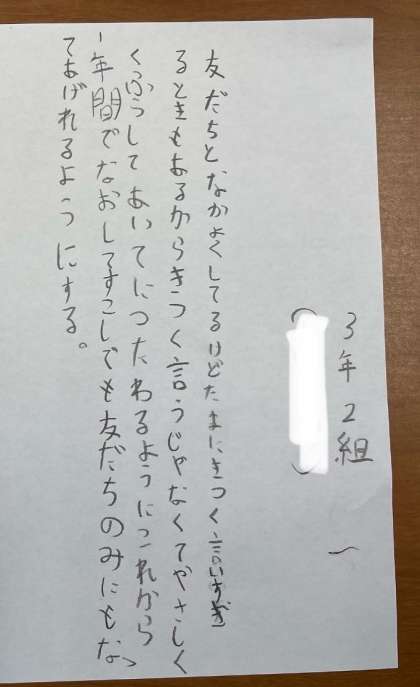 3年2組
友だちとなかよくしてるけどたまにきつく言いすぎ
るときもあるからきつく言うじゃなくてやさしく
くふうしてあいてにつたわるようにこれから
1年間でなおしてすこしでも友だちのみにもなっ
てあげれるようにする。